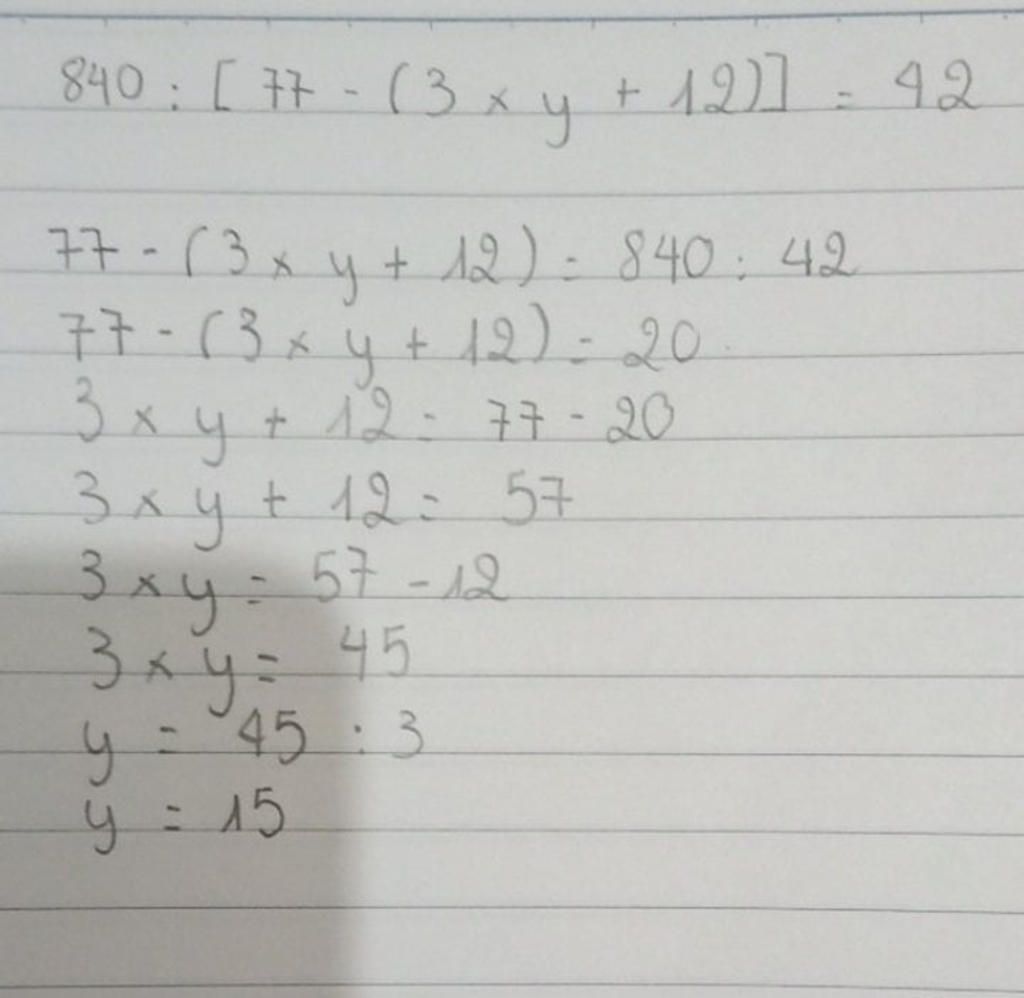 840 : [ 77 - (3 × y + 12)] = 42
77 - (3 × y + 12) = 840 : 42
77 - (3 × y + 12) = 20
3 × y + 12 = 77 - 20
3 × y + 12 = 57
3 × y = 57 - 12
3 × y = 45
y = 45 : 3
y = 15